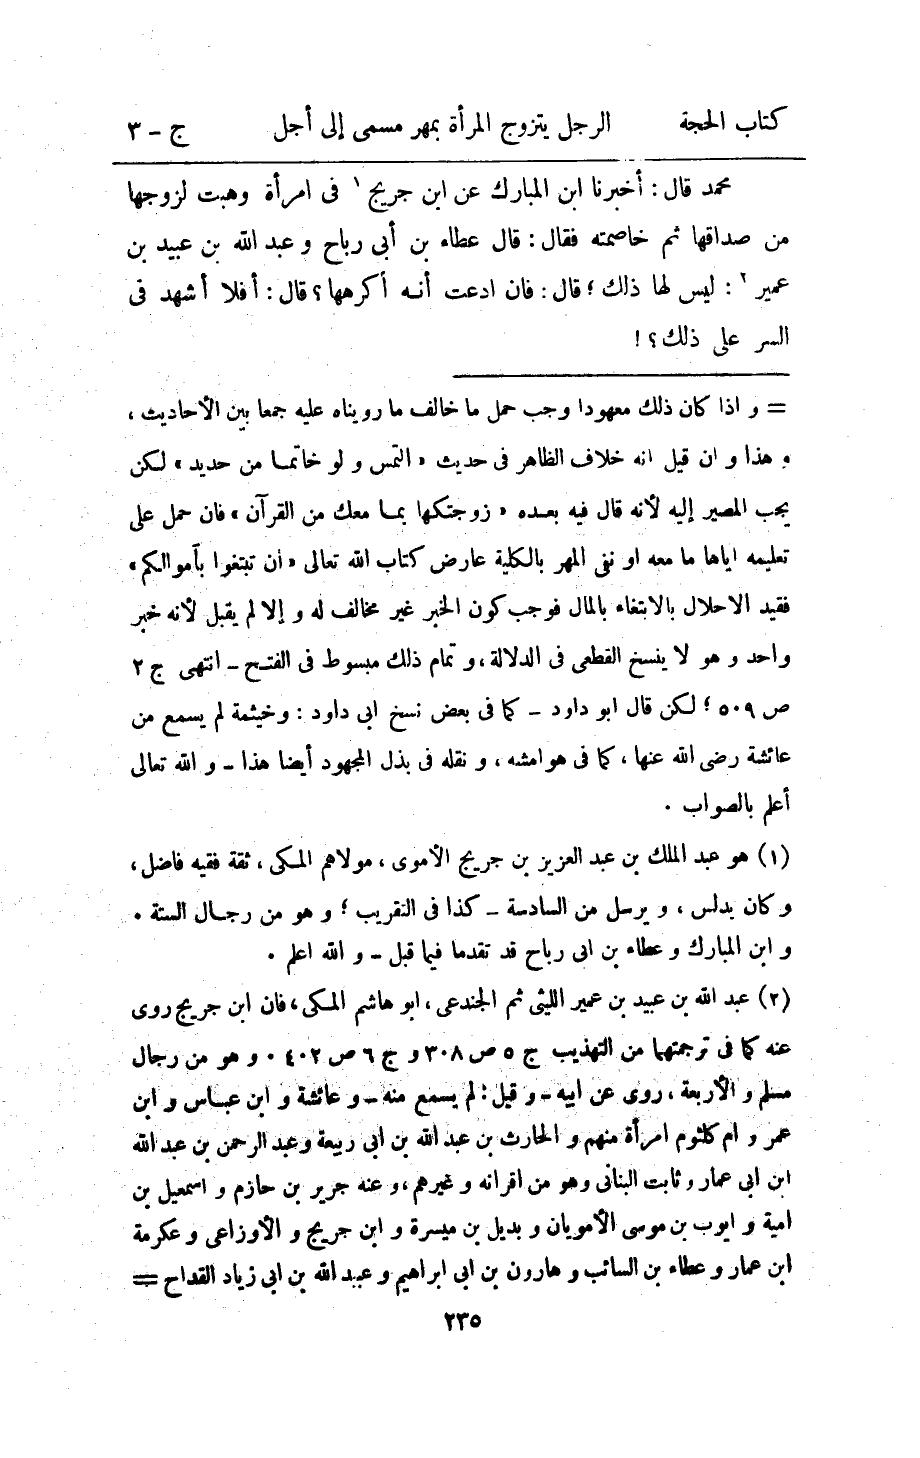 كتاب الحجة الرجل يتزوج المرأة بمهر مسمى إلى أجل ج – ٣
محمد قال : أخبرنا ابن المبارك عن ابن جريج ١ فى امرأة وهبت لزوجها
من صداقها ثم خاصمته فقال : قال عطاء بن أبى رباح و عبد الله بن عبيد بن
عمير ٢ : ليس لها ذلك ؛ قال : فان ادعت أنه أكرهها ؟ قال : أفلا أشهد فى
السر على ذلك ؟ !
= و اذا كان ذلك معهودا وجب حمل ما خالف ما رويناه عليه جمعا بين الأحاديث ،
و هذا و ان قيل انه خلاف الظاهر فى حديث « التمس و لو خاتما من حديد » لكن
يجب المصير إليه لأنه قال فيه بعده « زوجتكها بما معك من القرآن » فان حمل على
تعليمه اياها ما معه او نفى المهر بالكلية عارض كتاب الله تعالى « ان تبتغوا بأموالكم »
فقيد الاحلال بالابتغاء بالمال فوجب كون الخبر غير مخالف له و إلا لم يقبل لأنه خبر
واحد و هو لا ينسخ القطعى فى الدلالة ، و تمام ذلك مبسوط فى الفتح – انتهى ج ٢
ص ٥٠٩ ؛ لكن قال ابو داود – كما فى بعض نسخ ابى داود : و خيثمة لم يسمع من
عائشة رضى الله عنها ، كما فى هوامشه ، و نقله فى بذل المجهود أيضا هذا – و الله تعالى
أعلم بالصواب .
(١) هو عبد الملك بن عبد العزيز بن جريج الأموى ، مولاهم المكى ، ثقة فقيه فاضل ،
و كان يدلس ، و يرسل من السادسة – كذا فى التقريب ؛ و هو من رجال الستة .
و ابن المبارك و عطاء بن ابى رباح قد تقدما فيما قبل – و الله اعلم .
(٢) عبد الله بن عبيد بن عمير الليثى ثم الجندعى ، ابو هاشم المكى ، فان ابن جريج روى
عنه كما فى ترجمتهما من التهذيب ج ٥ ص ٣٠٨ و ج ٦ ص ٤٠٢ . و هو من رجال
مسلم و الأربعة ، روى عن ابيه – و قيل : لم يسمع منه – و عائشة و ابن عباس و ابن
عمر و ام كلثوم امرأة منهم و الحارث بن عبد الله بن ابى ربيعة و عبد الرحمن بن عبد الله
ابن ابى عمار و ثابت البنانى وهو من اقرانه و غيرهم ، و عنه جرير بن حازم و اسمعيل بن
امية و ايوب بن موسى الأمويان و بديل بن ميسرة و ابن جريج و الأوزاعى و عكرمة
ابن عمار و عطاء بن السائب و هارون بن ابى ابراهيم و عبد الله بن ابى زياد القداح =
٢٣٥